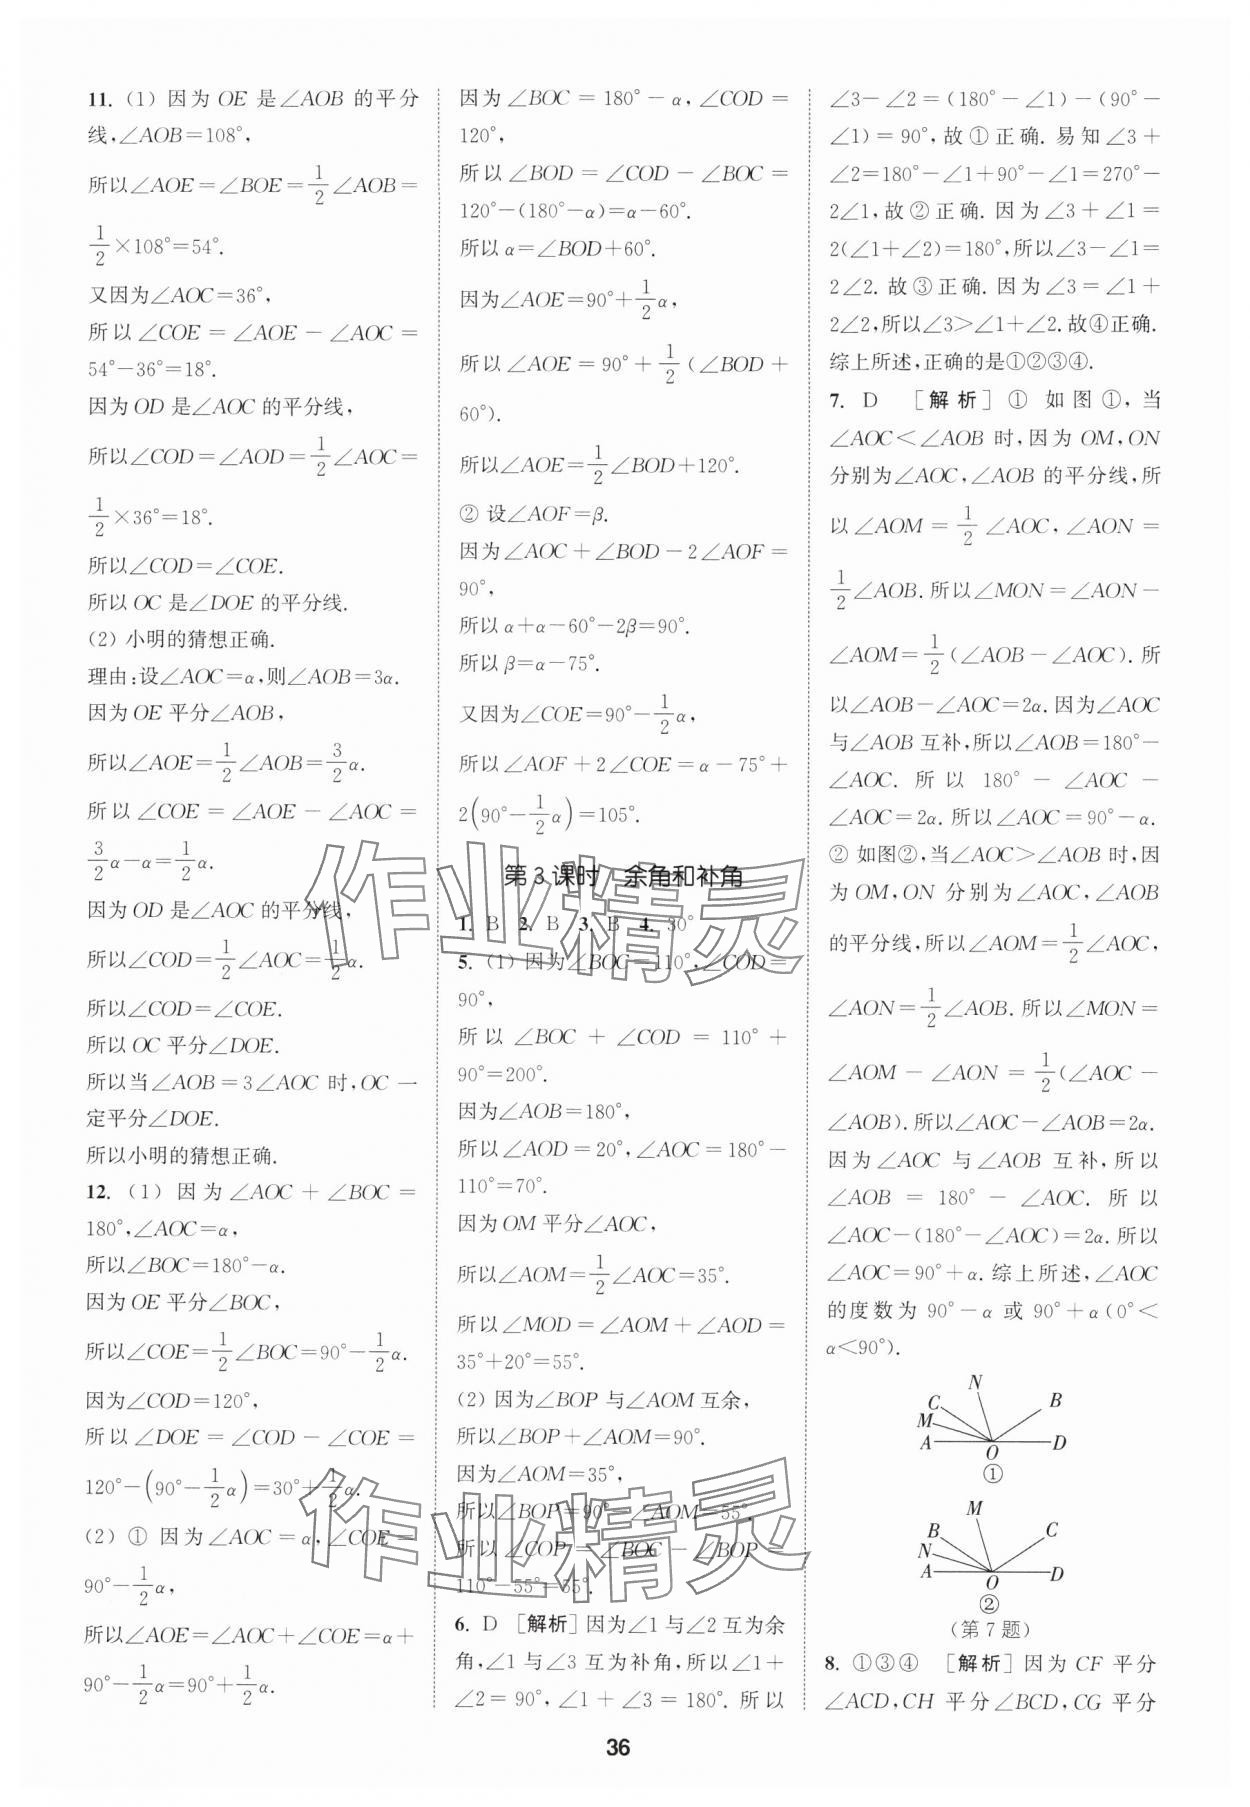 11. (1) 因为 OE 是∠AOB 的平分
线,∠AOB=108°,
所以∠AOE=∠BOE=1/2∠AOB=
1/2×108°=54°.
又因为∠AOC=36°,
所以∠COE=∠AOE-∠AOC=
54°-36°=18°.
因为 OD 是∠AOC 的平分线,
所以∠COD=∠AOD=1/2∠AOC=
1/2×36°=18°.
所以∠COD=∠COE.
所以 OC 是∠DOE 的平分线.
(2) 小明的猜想正确.
理由:设∠AOC=α,则∠AOB=3α.
因为 OE 平分∠AOB,
所以∠AOE=1/2∠AOB=3/2α.
所以∠COE=∠AOE-∠AOC=
3/2α-α=1/2α.
因为 OD 是∠AOC 的平分线,
所以∠COD=1/2∠AOC=1/2α.
所以∠COD=∠COE.
所以 OC 平分∠DOE.
所以当∠AOB=3∠AOC 时,OC 一
定平分∠DOE.
所以小明的猜想正确.
12. (1) 因为∠AOC+∠BOC=
180°,∠AOC=α,
所以∠BOC=180°-α.
因为 OE 平分∠BOC,
所以∠COE=1/2∠BOC=90°-1/2α.
因为∠COD=120°,
所以∠DOE=∠COD-∠COE=
120°-(90°-1/2α)=30°+1/2α.
(2) ① 因为∠AOC=α,∠COE=
90°-1/2α,
所以∠AOE=∠AOC+∠COE=α+
90°-1/2α=90°+1/2α.
因为∠BOC=180°-α,∠COD=
120°,
所以∠BOD=∠COD-∠BOC=
120°-(180°-α)=α-60°.
所以 α=∠BOD+60°.
因为∠AOE=90°+1/2α,
所以∠AOE=90°+1/2(∠BOD+
60°).
所以∠AOE=1/2∠BOD+120°.
② 设∠AOF=β.
因为∠AOC+∠BOD-2∠AOF=
90°,
所以 α+α-60°-2β=90°.
所以 β=α-75°.
又因为∠COE=90°-1/2α,
所以∠AOF+2∠COE=α-75°+
2(90°-1/2α)=105°.
第 3 课时 余角和补角
1. B 2. B 3. B 4. 30°
5. (1) 因为∠BOC=110°,∠COD=
90°,
所以∠BOC+∠COD=110°+
90°=200°.
因为∠AOB=180°,
所以∠AOD=20°,∠AOC=180°-
110°=70°.
因为 OM 平分∠AOC,
所以∠AOM=1/2∠AOC=35°.
所以∠MOD=∠AOM+∠AOD=
35°+20°=55°.
(2) 因为∠BOP 与∠AOM 互余,
所以∠BOP+∠AOM=90°.
因为∠AOM=35°,
所以∠BOP=90°-∠AOM=55°.
所以∠COP=∠BOC-∠BOP=
110°-55°=55°.
6. D [解析]因为∠1 与∠2 互为余
角,∠1 与∠3 互为补角,所以∠1+
∠2=90°,∠1+∠3=180°. 所以
∠3-∠2=(180°-∠1)-(90°-
∠1)=90°,故①正确. 易知∠3+
∠2=180°-∠1+90°-∠1=270°-
2∠1,故②正确. 因为∠3+∠1=
2(∠1+∠2)=180°,所以∠3-∠1=
2∠2. 故③正确. 因为∠3=∠1+
2∠2,所以∠3>∠1+∠2. 故④正确.
综上所述,正确的是①②③④.
7. D [解析]① 如图①,当
∠AOC<∠AOB 时,因为 OM,ON
分别为∠AOC,∠AOB 的平分线,所
以∠AOM=1/2∠AOC,∠AON=
1/2∠AOB. 所以∠MON=∠AON-
∠AOM=1/2(∠AOB-∠AOC). 所
以∠AOB-∠AOC=2α. 因为∠AOC
与∠AOB 互补,所以∠AOB=180°-
∠AOC. 所以 180°-∠AOC-
∠AOC=2α. 所以∠AOC=90°-α.
② 如图②,当∠AOC>∠AOB 时,因
为 OM,ON 分别为∠AOC,∠AOB
的平分线,所以∠AOM=1/2∠AOC,
∠AON=1/2∠AOB. 所以∠MON=
∠AOM-∠AON=1/2(∠AOC-
∠AOB). 所以∠AOC-∠AOB=2α.
因为∠AOC 与∠AOB 互补,所以
∠AOB=180°-∠AOC. 所以
∠AOC-(180°-∠AOC)=2α. 所以
∠AOC=90°+α. 综上所述,∠AOC
的度数为 90°-α 或 90°+α(0°<
α<90°).
N
C
B
M
A
O
D
①
M
B
C
N
A
O
D
②
(第 7 题)
8. ①③④ [解析]因为 CF 平分
∠ACD,CH 平分∠BCD,CG 平分
36
作业精灵
作业精灵